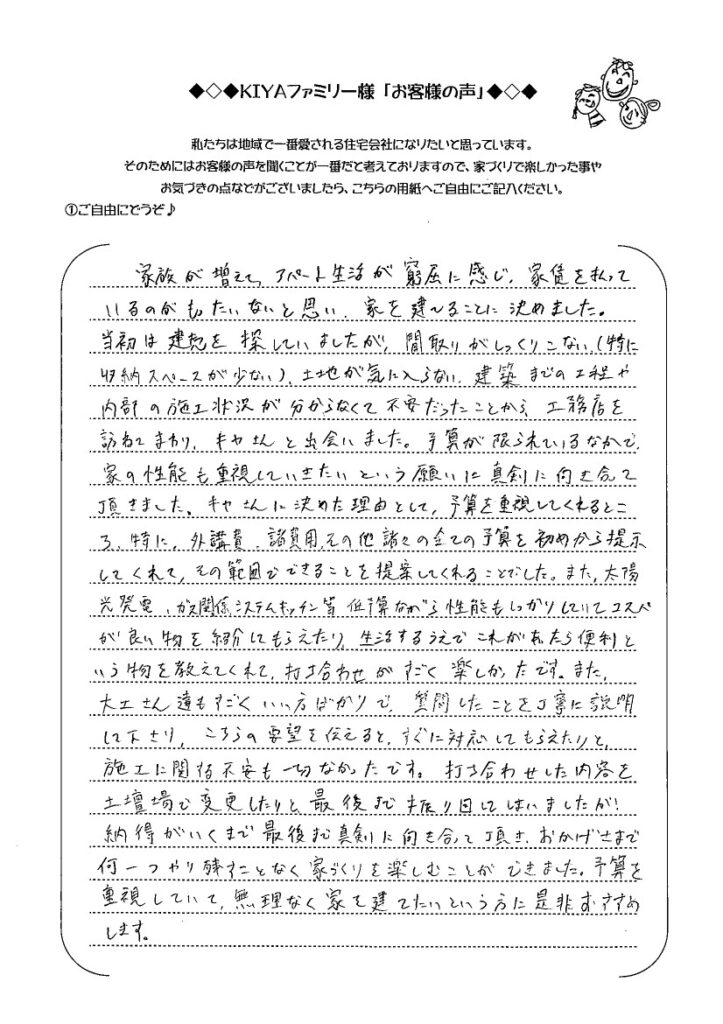 ◆◇◆KIYAファミリー様「お客様の声」◆◇◆
私たちは地域で一番愛される住宅会社になりたいと思っています。
そのためにはお客様の声を聞くことが一番だと考えておりますので、家づくりで楽しかった事や
お気づきの点などがございましたら、こちらの用紙へご自由にご記入ください。
①ご自由にどうぞ♪
家族が増えて、アパート生活が窮屈に感じ、家賃を払って
いるのがもったいないと思い、家を建てることに決めました。
当初は建売を探していましたが、間取りがしっくりこない、(特に
収納スペースが少ない)、土地が気に入らない、建築までの工程や
内部の施工状況が分からなくて不安だったことから、工務店を
訪ねてまわり、キヤさんと出会いました。予算が限られているなかで、
家の性能も重視していきたいという願いに真剣に向き合って
頂きました。キヤさんに決めた理由として、予算を重視してくれるとこ
ろ、特に、外講費、諸費用、その他諸々の全ての予算を初めから提示
してくれて、その範囲でできることを提案してくれることでした。また、太陽
光発電、ガス関係、システムキッチン等、低予算ながら性能もしっかりしていてコスパ
が良い物を紹介してもらえたり、生活するうえでこれがあったら便利と
いう物を教えてくれて、打ち合わせがすごく楽しかったです。また、
大工さん達もすごくいい方ばかりで、質問したことを丁寧に説明
して下さり、こちらの要望を伝えると、すぐに対応してもらえたりと、
施工に関する不安も一切なかったです。打ち合わせした内容を
土壇場で変更したりと、最後まで振り回してしまいましたが、
納得がいくまで最後まで真剣に向き合って頂き、おかげさまで
何一つやり残すことなく家づくりを楽しむことができました。予算を
重視していて、無理なく家を建てたいという方に是非おすすめ
します。